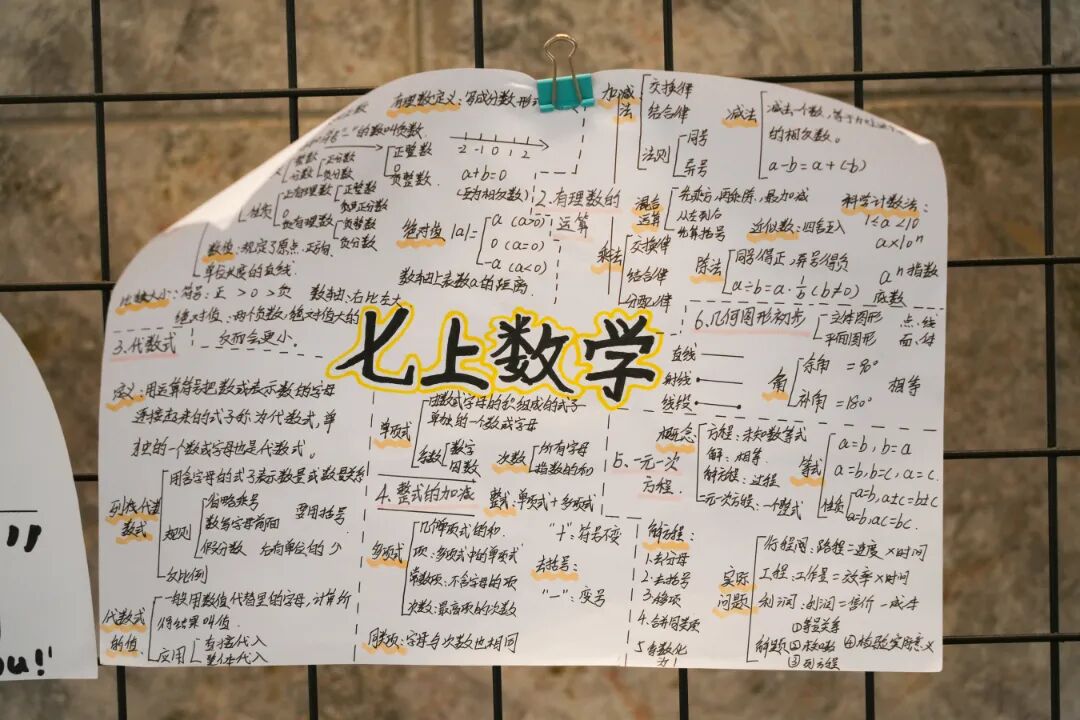 有理数定义：写成分数形
的数叫负数
整数
分数
正分数
负分数
正整数
0
负整数
-2 -1 0 1 2
a+b=0
(互为相反数)
性质
正有理数
正整数
正分数
0
负有理数
负整数
负分数
数轴：规定了原点、正方向、
单位长度的直线
绝对值 |a|=
a (a>0)
0 (a=0)
-a (a<0)
数轴上表数a的距离
比较大小：符号：正 > 0 > 负 数轴：右比左大
绝对值：两个负数，绝对值大的
反而会更小。
2.有理数的
运算
加减法
交换律
结合律
法则
同号
异号
减法
减法一个数，等于
的相反数。
a-b=a+(-b)
混合
运算
先乘方，再乘除，最后加减
从左到右
先算括号
近似数：四舍五入
科学计数法：
1≤a<10
a×10ⁿ
乘法
交换律
结合律
分配律
除法
同号得正，异号得负
a÷b=a·1/b (b≠0)
aⁿ 指数
底数
七上数学
3.代数式
定义：用运算符号把数或表示数的字母
连接起来的式子称为代数式，单
独的一个数或字母也是代数式。
列代数式
用含字母的式子表示数量或数量关系
规则
省略乘号
数写字母前面
假分数
要用括号
反比例
代数式
的值
一般用数值代替里的字母，计算所
得结果叫值
应用
直接代入
整体代入
单项式
由数或字母的积组成的式子
单独的一个数或字母
系数
数字
因数
次数
所有字母
指数的和
4.整式的加减 整式：单项式+多项式
多项式
几个单项式的和
项：多项式中的单项式
常数项：不含字母的项
次数：最高项的次数
同类项：字母与次数也相同
去括号：
"+"：符号不变
"-"：变号
6.几何图形初步
立体图形
平面图形
点、线
面、体
直线
射线
线段
角
余角 =90°
补角 =180°
相等
5.一元一次
方程
概念
方程：未知数等式
解：相等
解方程：过程
一元一次方程：一个整式
等式
a=b，b=a
a=b，b=c，a=c
性质
a=b，a±c=b±c
a=b，ac=bc
解方程：
1.去分母
2.去括号
3.移项
4.合并同类项
5.系数化
实际
问题
行程问：路程=速度×时间
工程：工作量=效率×时间
利润：利润=售价-成本
解题
①等量关系
②设未知数
③列方程
④检验实际意义